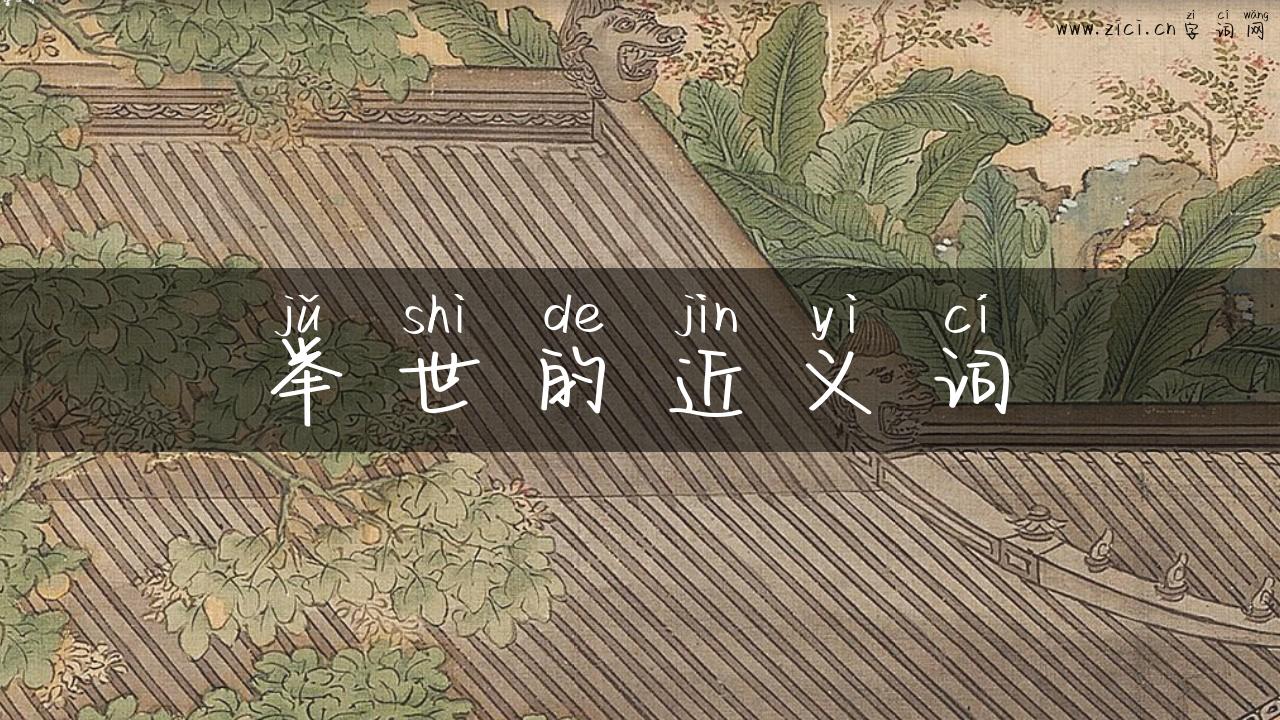 zì cí wǎng
www.zici.cn 字词网
jǔ shì de jìn yì cí
举世的近义词